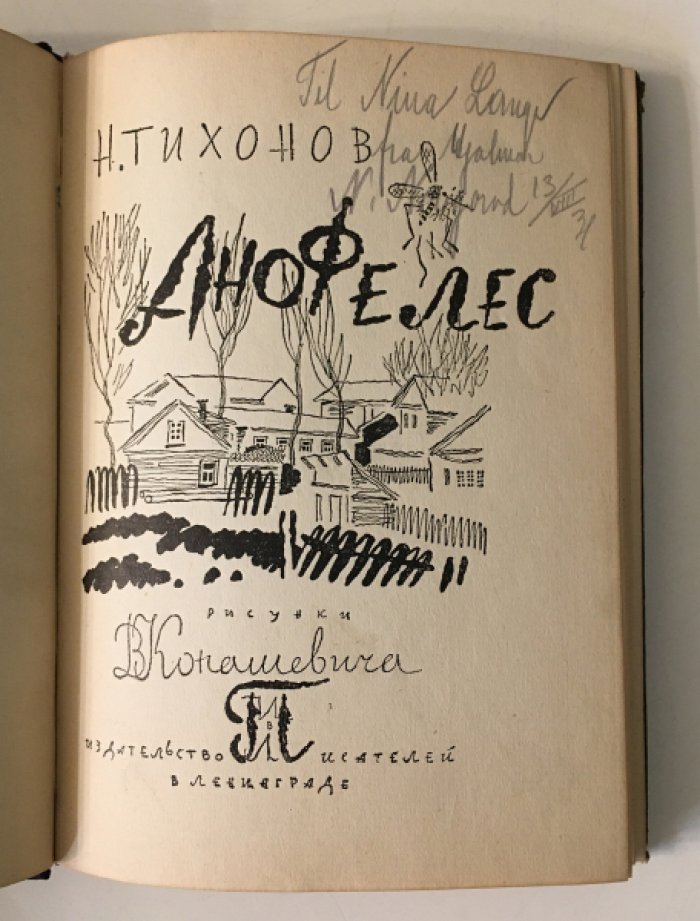 Til Nina Lange
Н. ТИХОНОВ
fra Hjalmar
N. Novgorod 13/VIII 31
АНОФЕЛЕС
РИСУНКИ
В. Конашевича
ИЗДАТЕЛЬСТВО ПИСАТЕЛЕЙ
В ЛЕНИНГРАДЕ